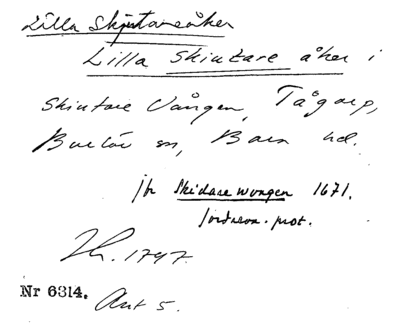 Lilla Skjutareåker
Lilla Skiutare åker i
Skiutare Vången, Tågarp,
Burlöv sn, Bara hd.
jfr Skidare wongen 1671.
Jordrev. prot.
1797.
Nr 6314. Akt 5.